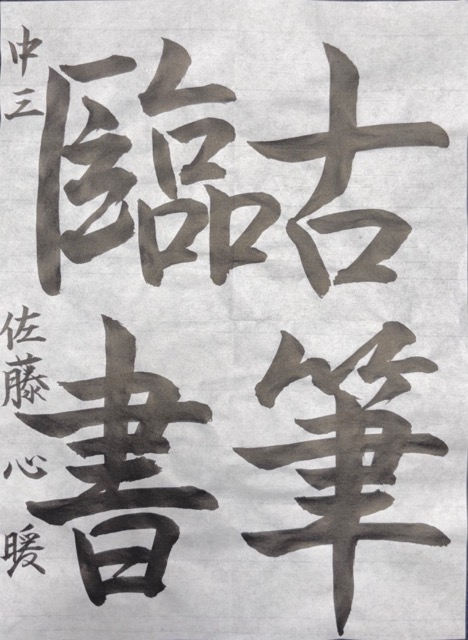 古筆
臨書
中三 佐藤心暖